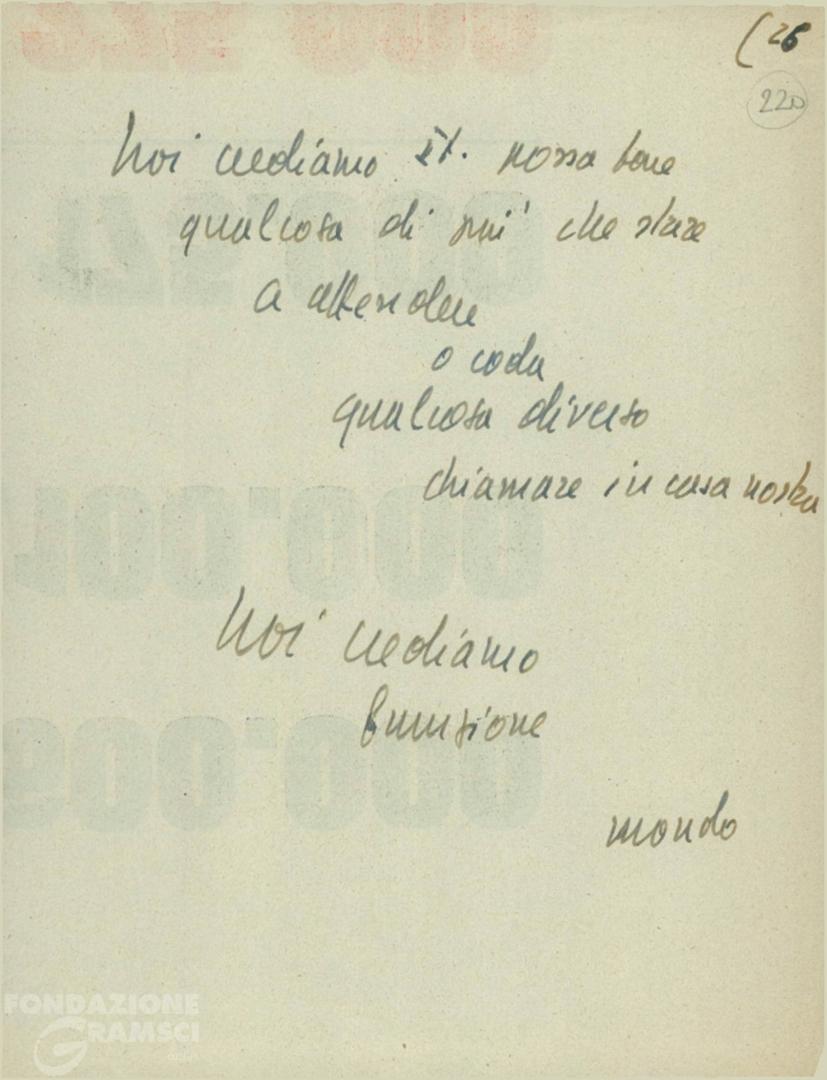 (26
220
Noi crediamo It. possa fare
qualcosa di più che stare
a attendere
o coda
qualcosa diverso
chiamare in casa nostra
Noi crediamo
funzione
mondo
FONDAZIONE
GRAMSCI